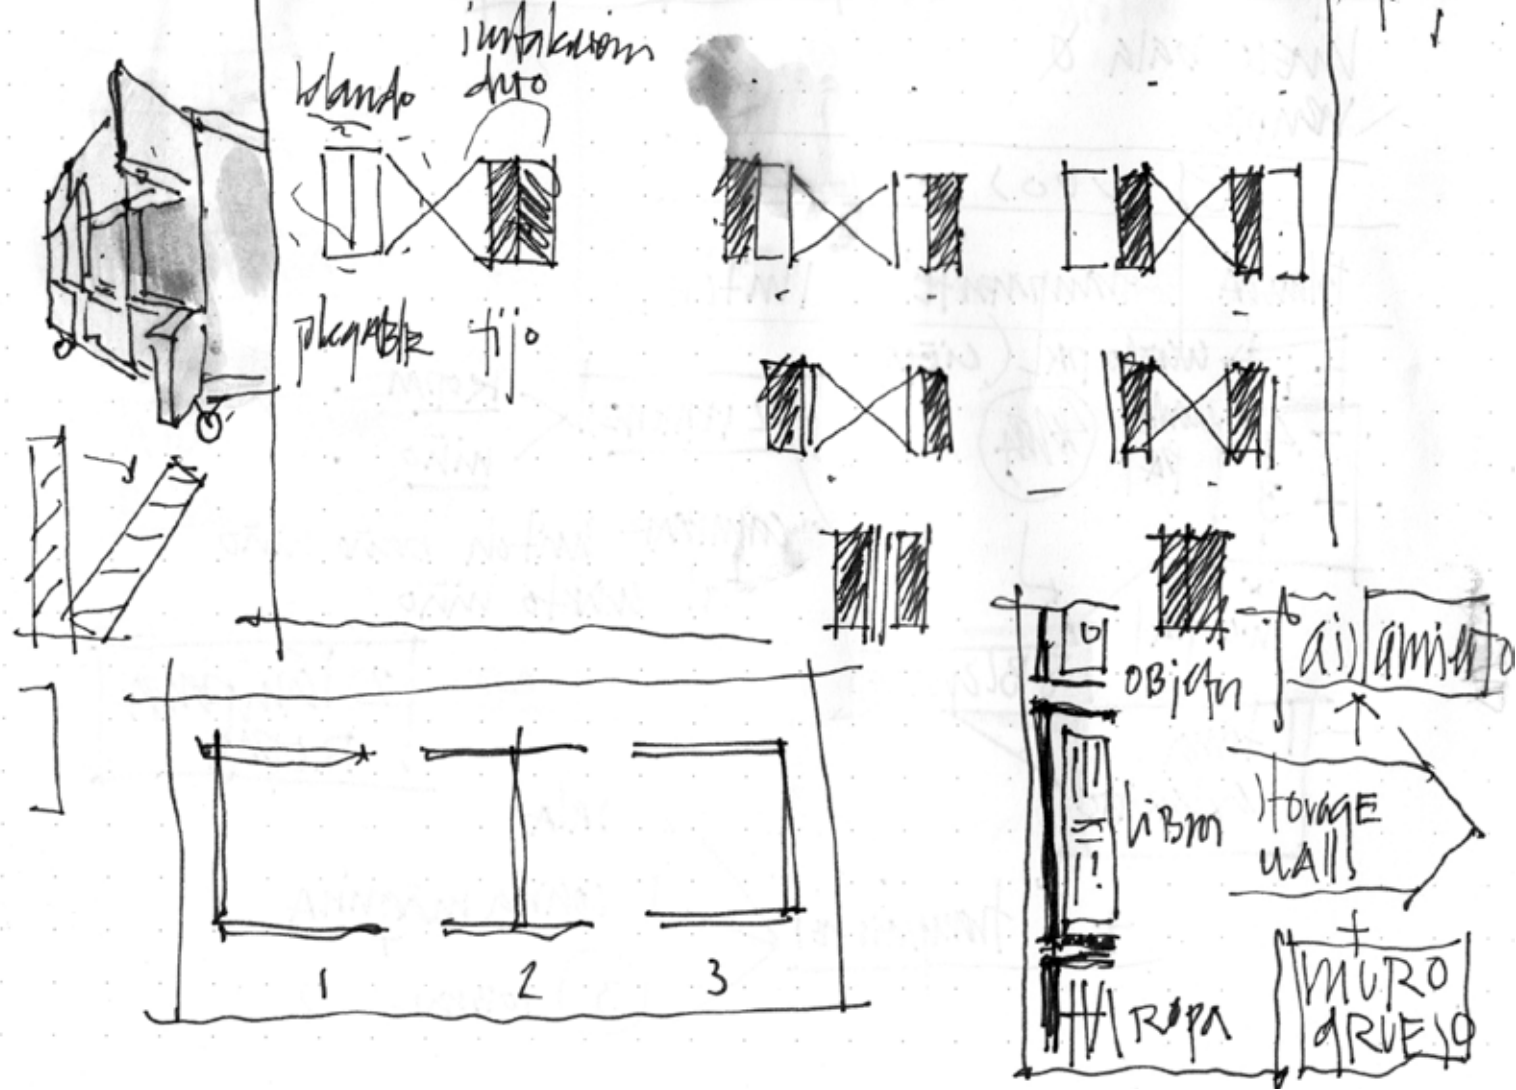 blando
instalaciones
duro
plegable fijo
1 2 3
OBJETOS
LIBROS
ROPA
aislamiento
storage
walls
+
MURO
GRUESO